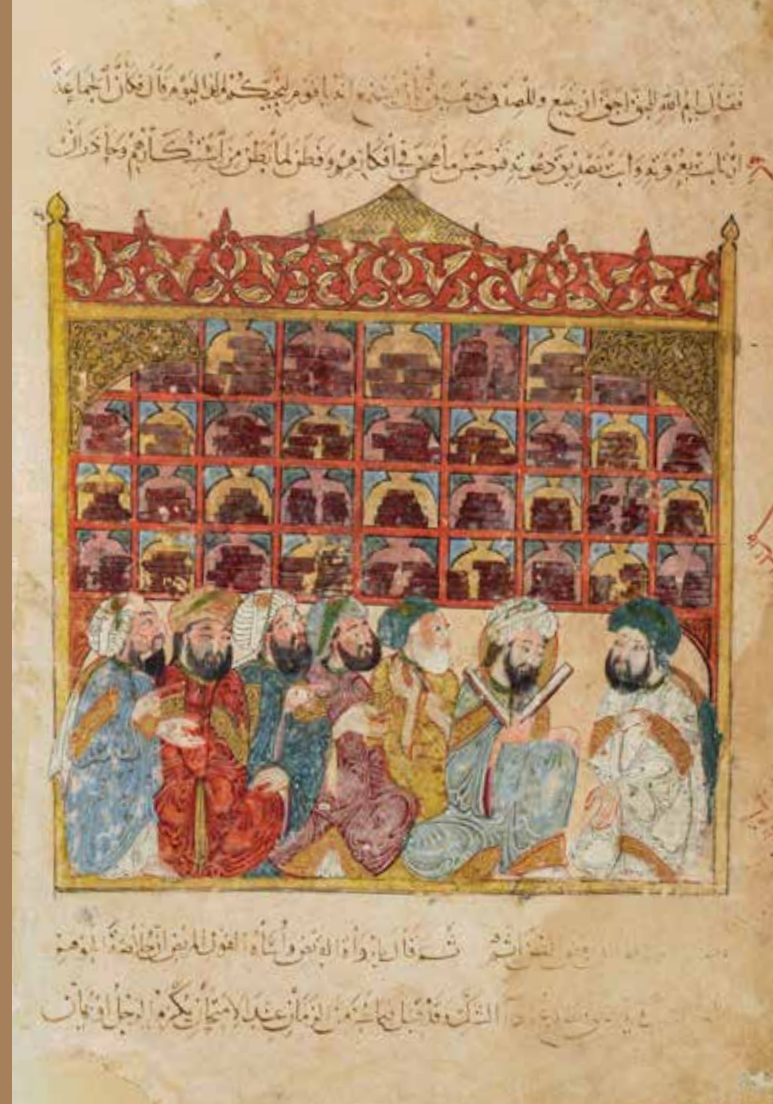 فقال ايم الله للحق احق ان يتبع وللصدق حقيق بان يستمع انه يا قوم لنجيكم مذ اليوم قال فكأن الجماعة
ارتابت بعزوته وابت تصديق دعوته فتوجس ما هجس في افكارهم وفطن لما بطن من استنكارهم وحاذر ان
بعض الظن اثم ثم قال يا رواة القريض واساة القول المريض ان خلاصة الجوهر
الشك وقد قيل فيما غبر من الزمان عند الامتحان يكرم الرجل او يهان